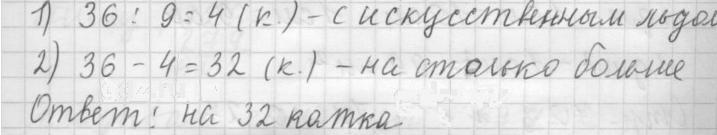 1) 36 : 9 = 4 (к.) – с искусственным льдом
2) 36 - 4 = 32 (к.) – на столько больше
Ответ: на 32 катка